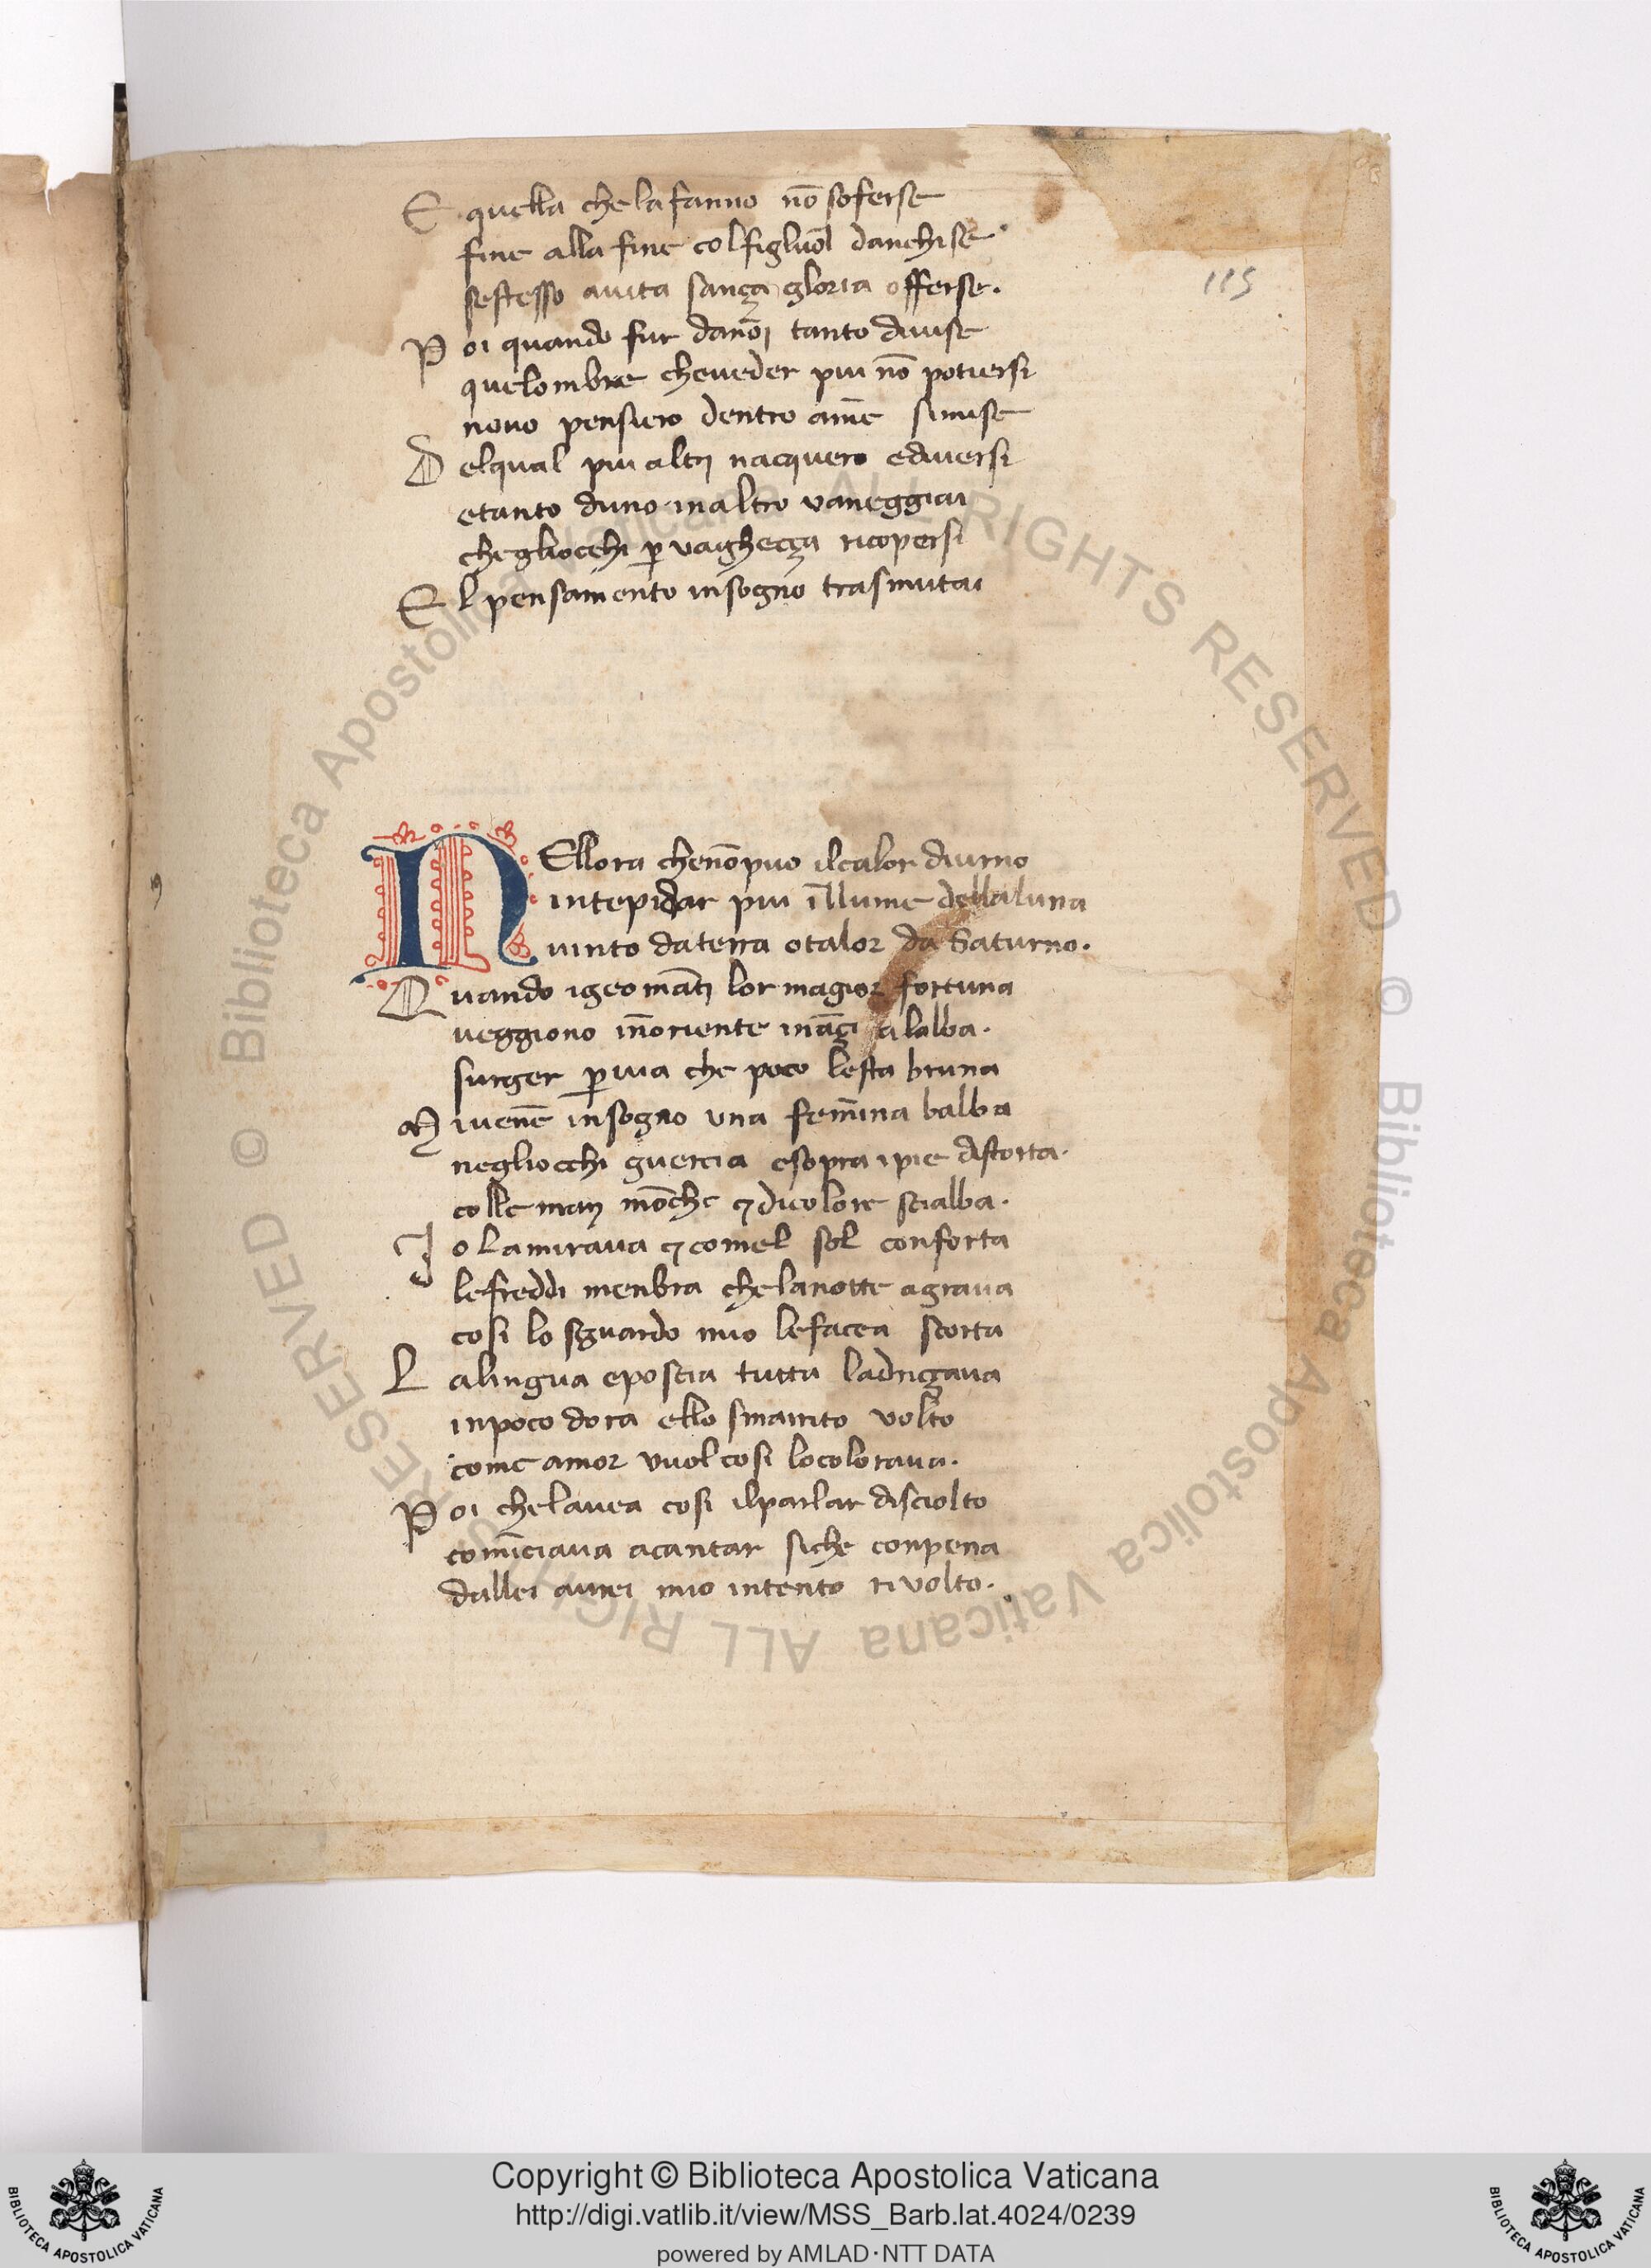 E quella che lafanno nō soferse
fine alla fine colfigluol danchise
sestesso auita sança gloria offerse.
Poi quando fur danoj tanto diuise
quelombre cheueder piu nō potiersi
nouo pensiero dentro amē simise
Delqual piu altrj nacquero ediuersi
etanto duno inaltro vaneggiai
chegliocchi p̱ vaghecça ricopersi
El pensamento insogno trasmutai
115
NEllora chenōpuo ilcalor diurno
intepidar piu īllume dellaluna
uinto daterra otalor da Saturno.
Quando igeomātj lor magior fortuna
veggiono īnoriente ināçi alalba.
surger p̱ uia che poco lesta bruna
Miuenē insogno una femīna balba
negliocchi guercia esopra ipie distorta.
colle manj mōche ⁊ dicolore scialba.
Io lamiraua ⁊ comel sol conforta
lefreddi menbra chelanotte agraua
cosi lo sguardo mio lefacea scorta
Lalingua eposcia tutta ladriççaua
inpoco dora ello smarrito volto
come amor vuol cosi locoloraua.
Poi chelauea cosi ilparlar disciolto
comīciaua acantar siche conpena
dallei aurei mio intento riuolto.
Copyright © Biblioteca Apostolica Vaticana
http://digi.vatlib.it/view/MSS_Barb.lat.4024/0239
powered by AMLAD·NTT DATA
BIBLIOTECA APOSTOLICA VATICANA
BIBLIOTECA APOSTOLICA VATICANA
© Biblioteca Apostolica Vaticana ALL RIGHTS RESERVED
© Biblioteca Apostolica Vaticana ALL RIGHTS RESERVED